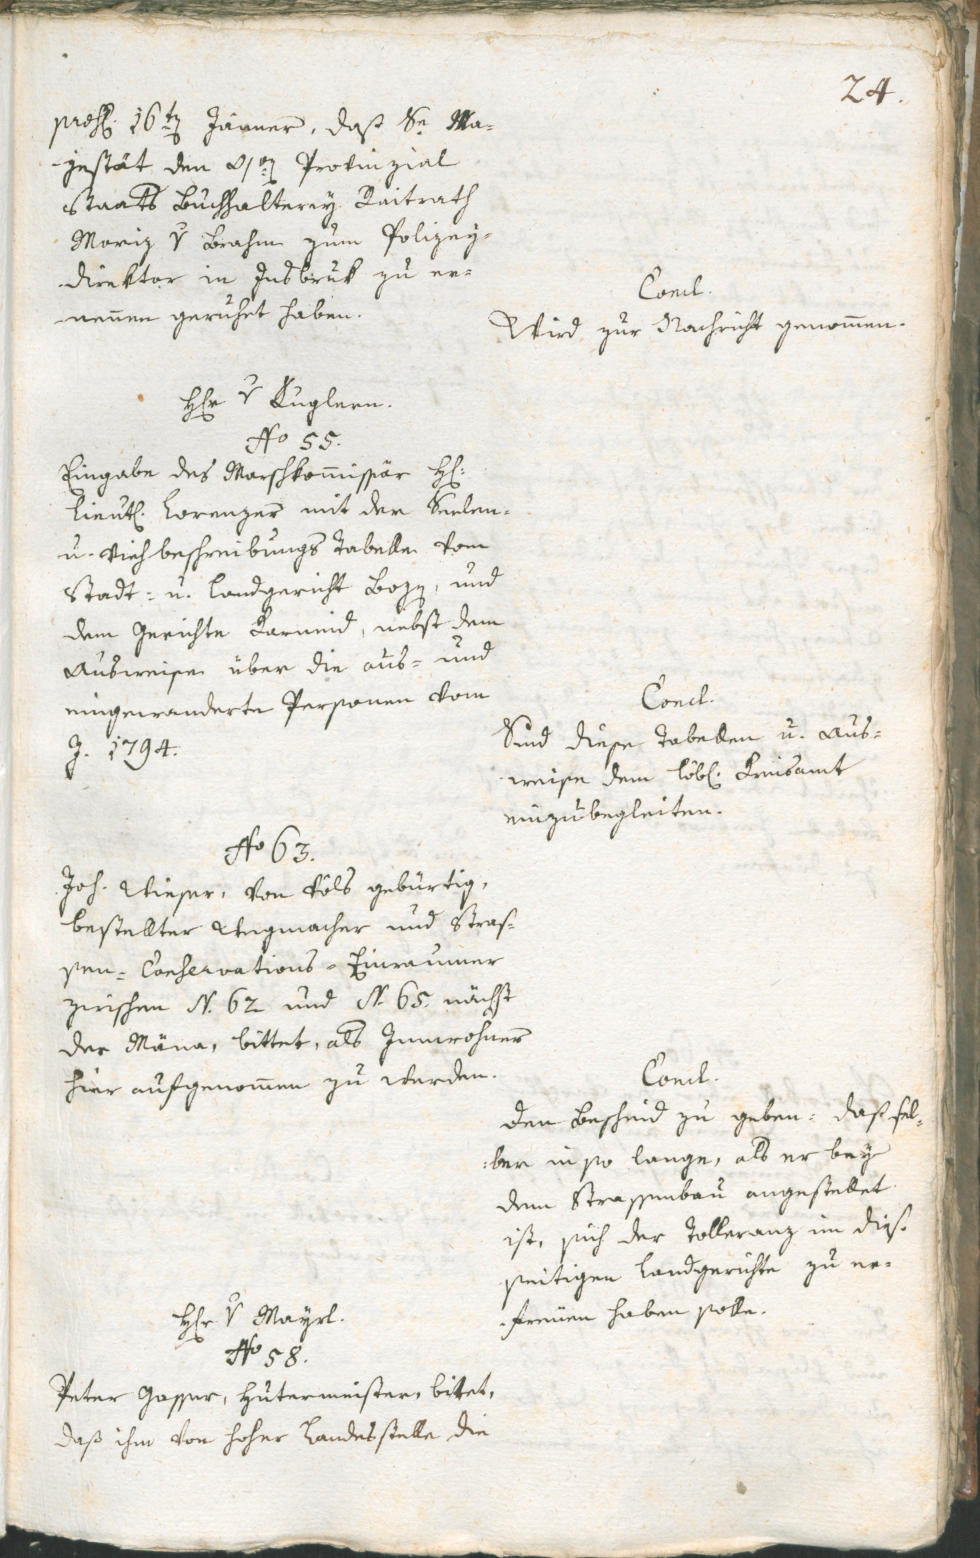 24.
16ten Jänner, daß Se Ma-
jestät den Provinzial
Staats Buchhalterey Raitrath
Moriz v Brahm zum Polizey-
direktor in Insbruk zu er-
neñen geruhet haben.
Concl.
Wird zur Nachricht genom̄en.
Hr v Kuglern.
No 55.
Eingabe des Marschkom̄issär H:
Lieut. Lorenzer mit der Seelen-
u. Viehbeschreibungs Tabelle vom
Stadt- u. Landgericht Bozn, und
dem Gerichte Karneid, nebst dem
Ausweise über die aus- und
eingewanderte Personen vom
J. 1794.
Concl.
Sind diese Tabellen u. Aus-
weise dem löbl. Kreisamt
einzubegleiten.
No 63.
Joh. Wieser, von Völs gebürtig,
bestellter Wegmacher und Stras-
sen-Conservations-Einraumer
zwischen N. 62 und N. 65. nächst
der Mäna, bittet, als Innwohner
hier aufgenom̄en zu werden.
Concl.
den Bescheid zu geben: daß sel-
ber in so lange, als er bey
dem Strassenbau angestellet
ist, sich der Tolleranz im dies-
seitigen Landgerichte zu er-
freuen haben solle.
Hr v Mayrl.
No 58.
Peter Gasser, Hutermeister, bitet,
daß ihm von hoher Landesstelle die